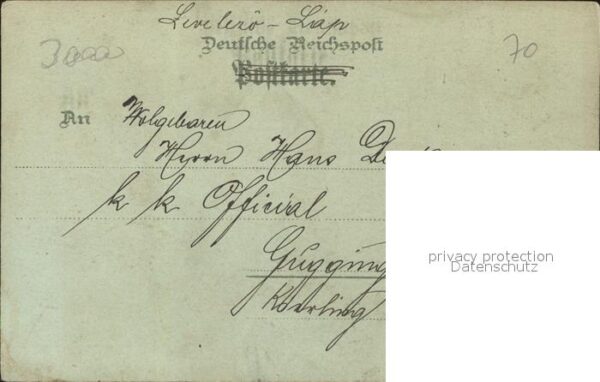 Levelező-Lap
Deutsche Reichspost
Postkarte.
3000
70
An Wolgebaren
Herrn Hans
k k Official
Gugging
Kierling
privacy protection
Datenschutz